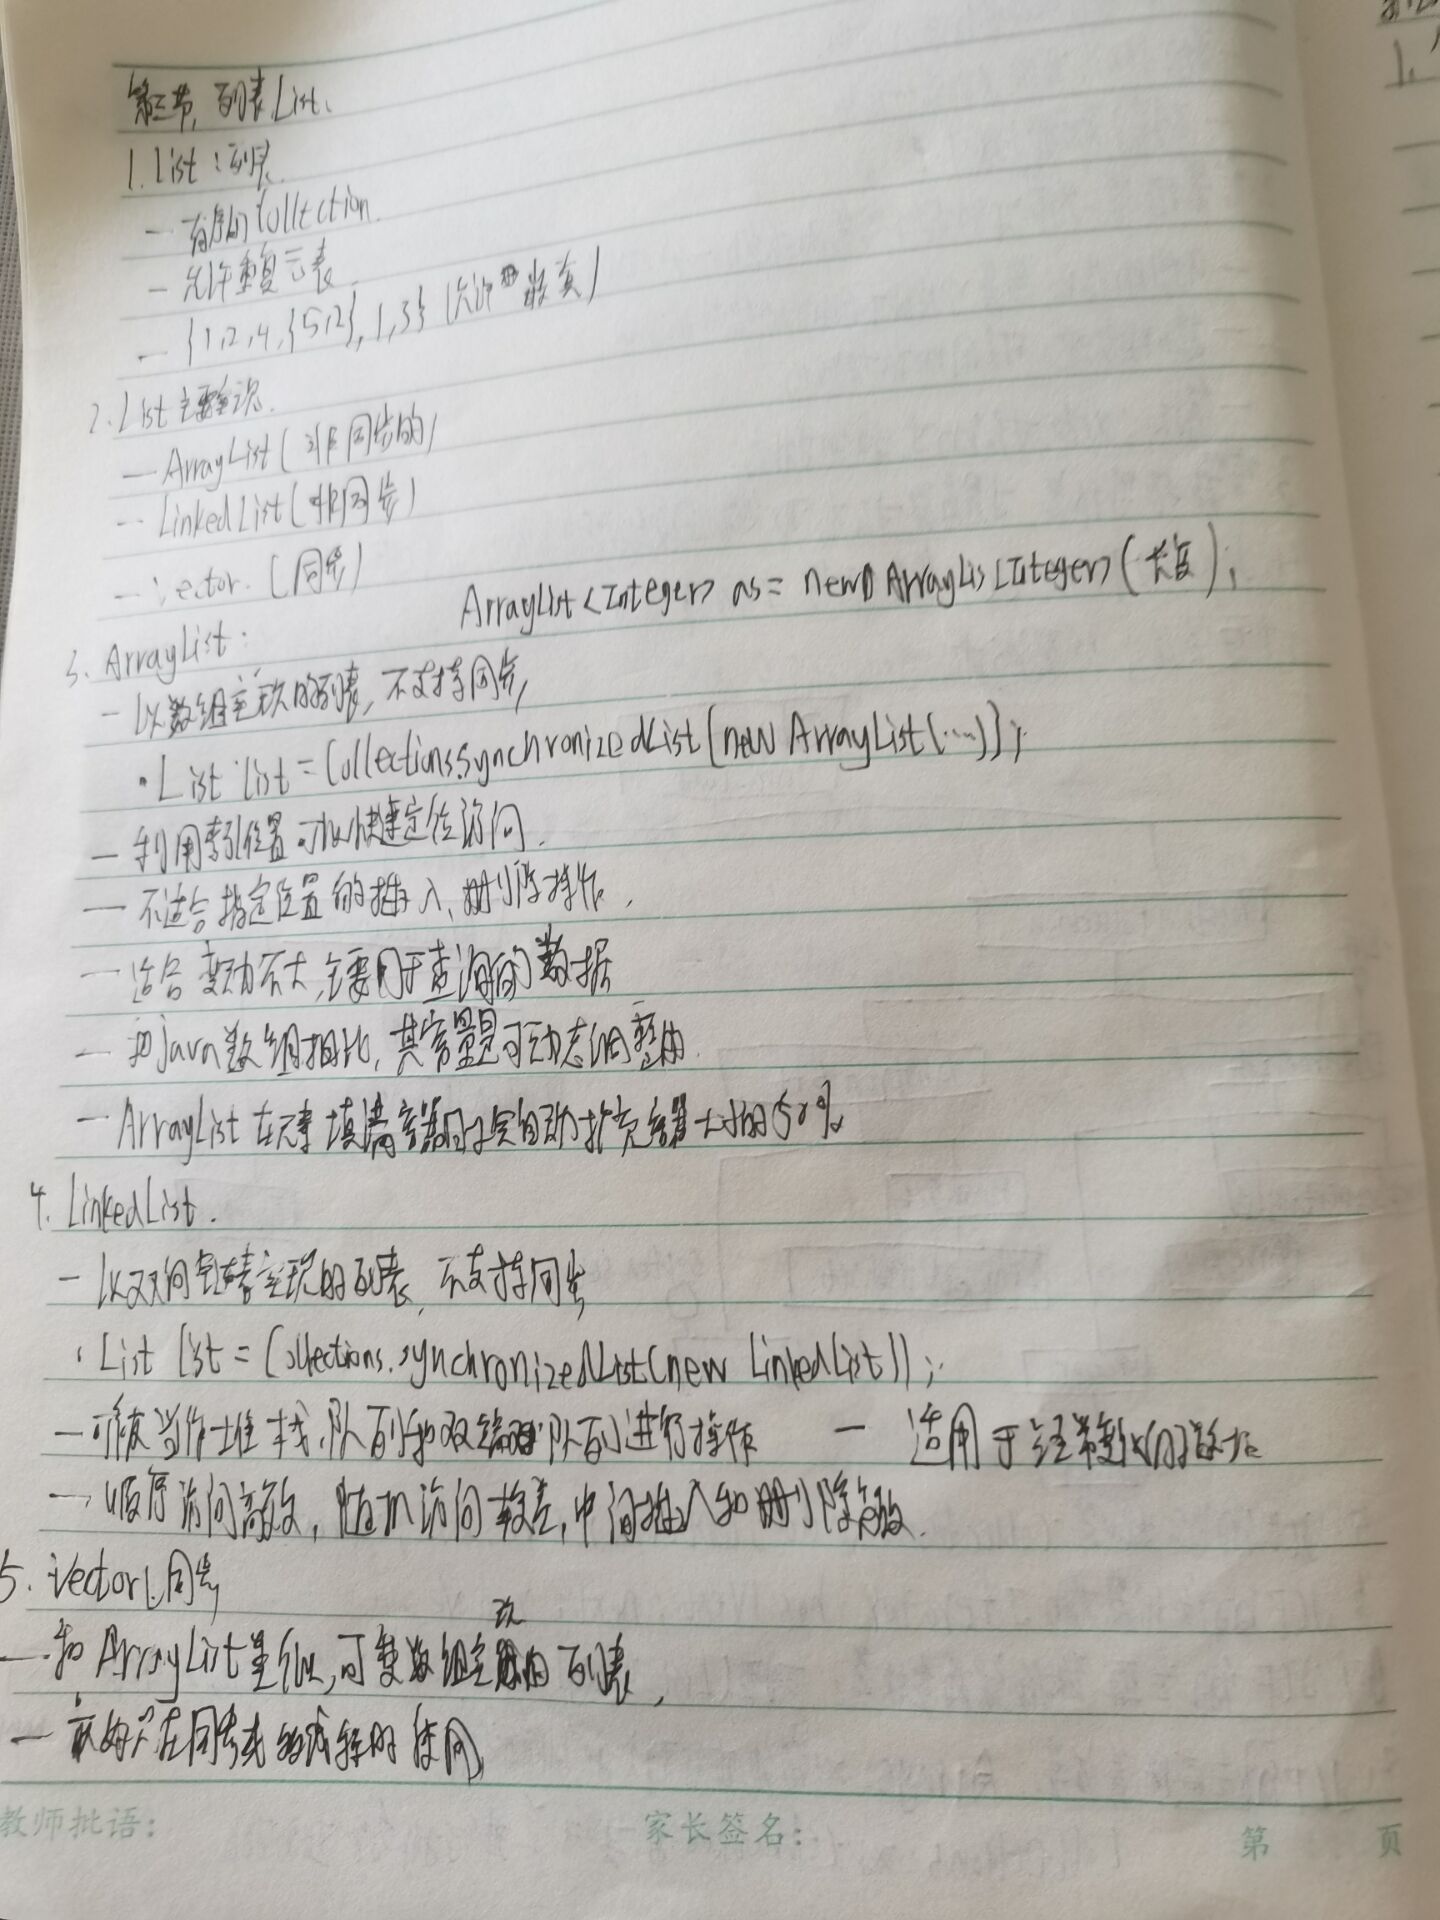 第三节, 列表List.
1. List:列表
— 有序的Collection.
— 允许重复元素
— {1,2,4,{5,2},1,3} (允许嵌套)
2. List主要实现.
— ArrayList(非同步的)
— LinkedList(非同步)
— Vector.(同步)
ArrayList<Integer> as = new ArrayLis<Integer>(长度);
3. ArrayList:
— 以数组实现的列表, 不支持同步,
• List list = Collections.synchronizedList(new ArrayList(...));
— 利用索引位置可以快速定位访问.
— 不适合指定位置的插入、删除操作.
— 适合变动不大,主要用于查询的数据
— 和java数组相比, 其容量是可动态调整的.
— ArrayList在元素填满容器时会自动扩充容器大小的50%
4. LinkedList.
— 以双向链表实现的列表, 不支持同步
• List list = Collections.synchronizedList(new LinkedList());
— 可被当作堆栈、队列和双端队列进行操作 — 适用于经常变化的数据
— 顺序访问高效, 随机访问较差, 中间插入和删除高效.
5. Vector(同步
— 和ArrayList类似,可变数组实现的列表,
— 在同步 的使用
教师批语:
家长签名:
第 页